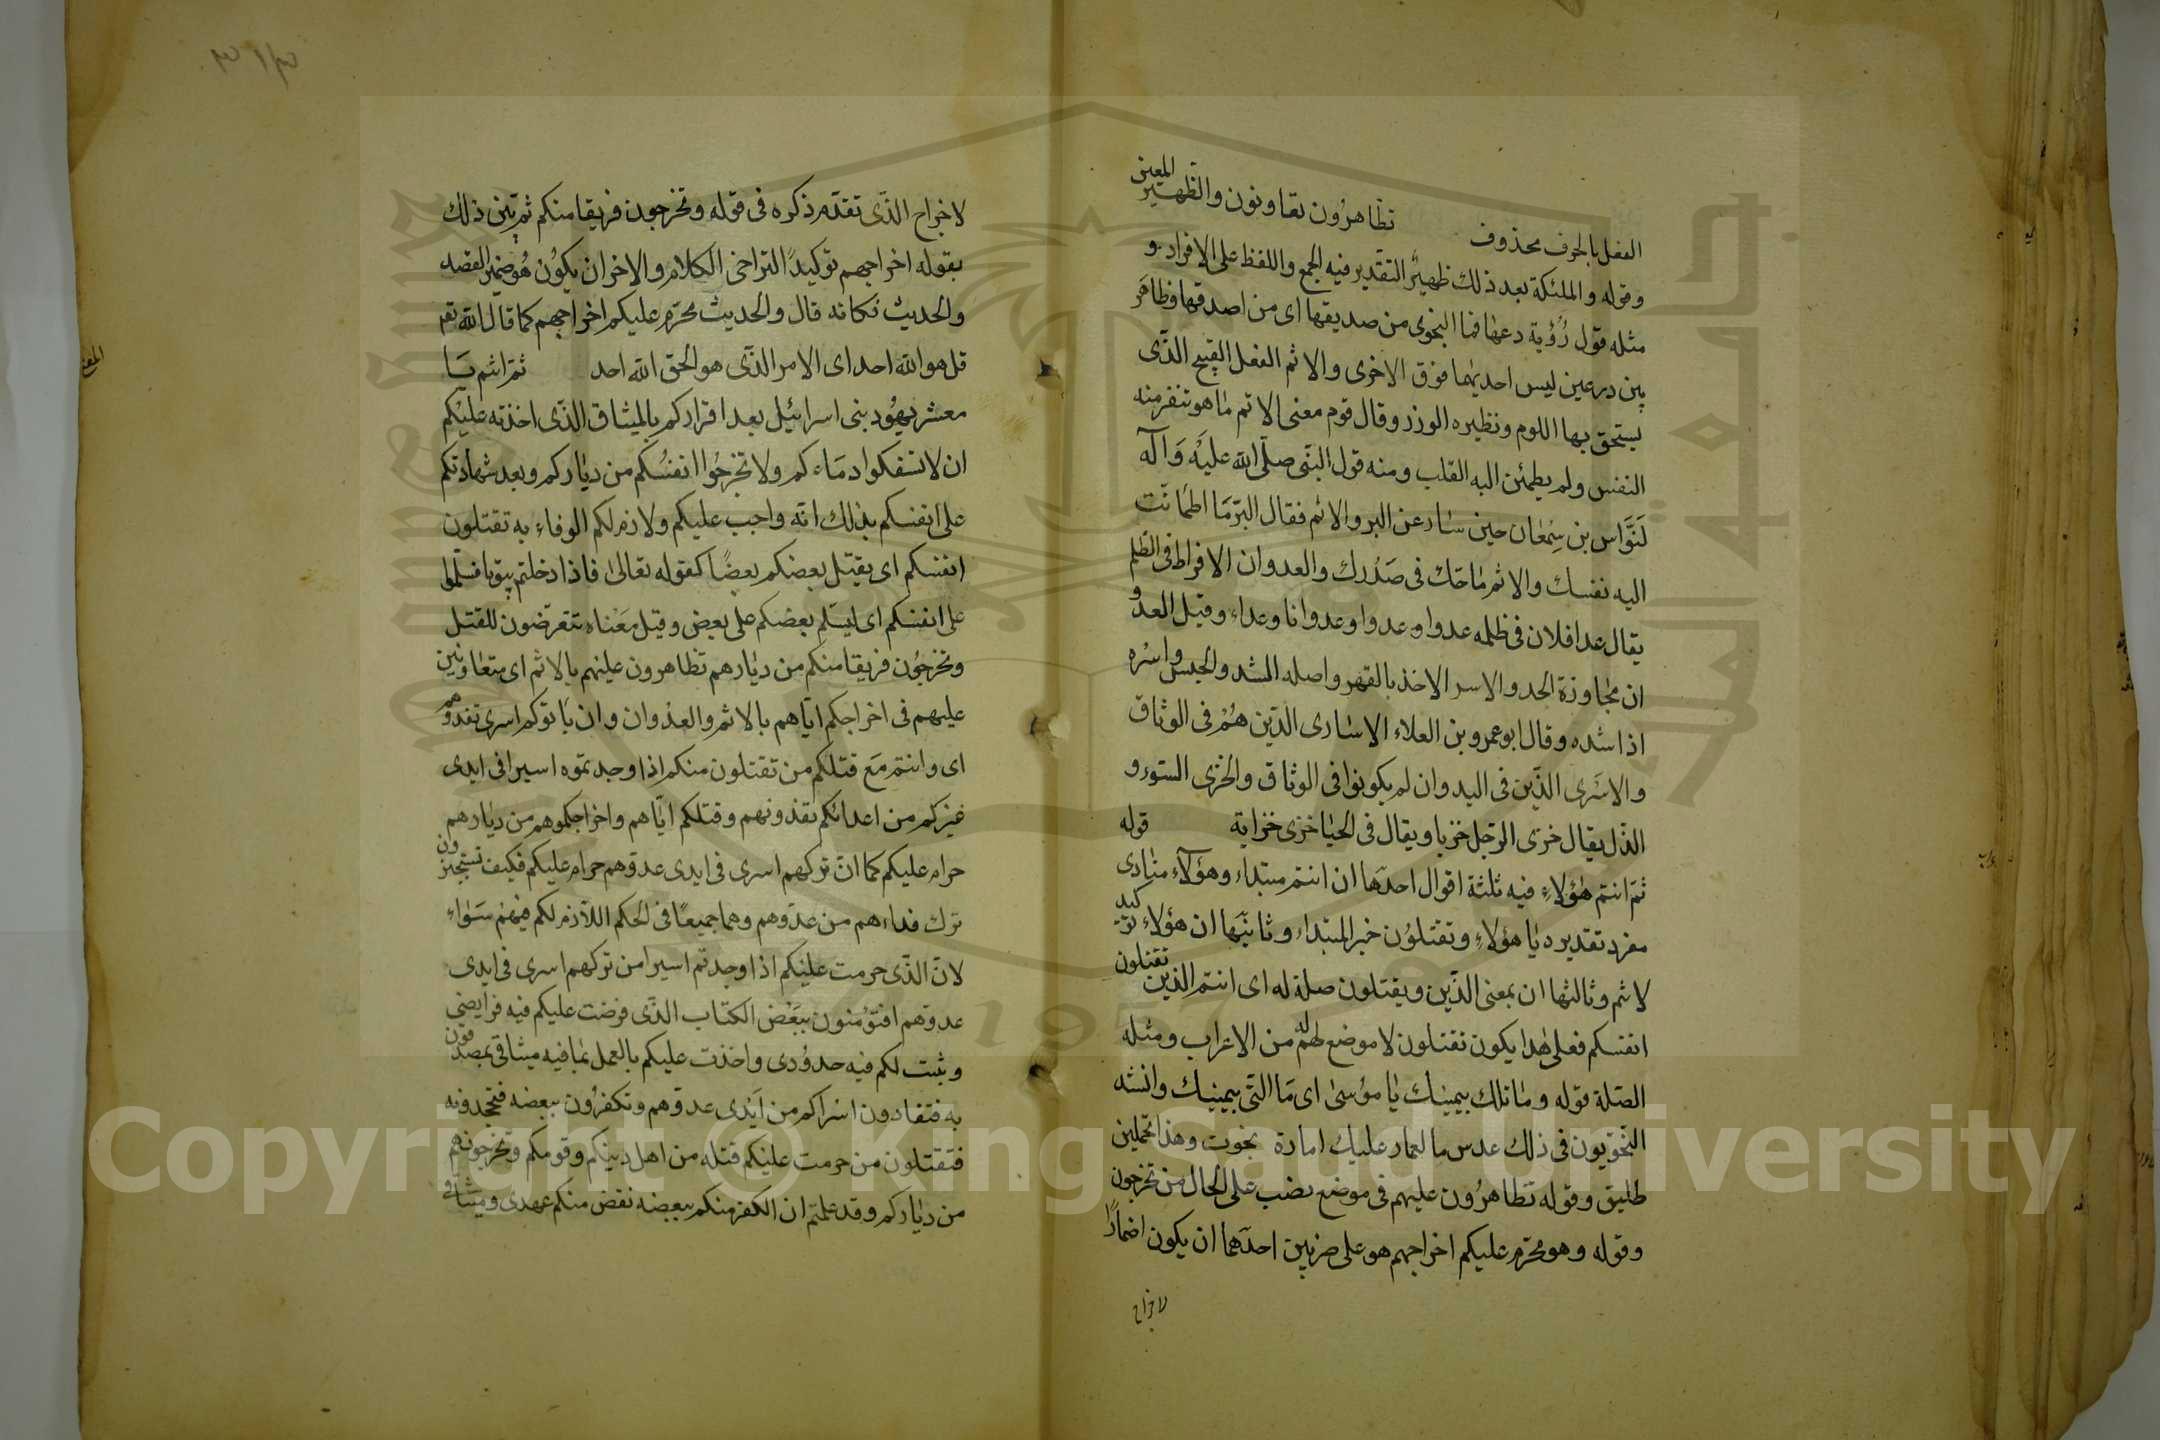 الفعل بالحرف محذوف تظاهرون تعاونون والظهير المعين
وقوله والملئكة بعد ذلك ظهير التقدير فيه الجمع واللفظ على الافراد و
مثله قول رؤبة دعها فما النحوى من صديقها اى من اصدقها وظاهر
بين درعين ليس احديهما فوق الاخرى والاثم الفعل القبيح الذى
يستحق بها اللوم ونظيره الوزر وقال قوم معنى الاثم ما هو تنفر منه
النفس ولم يطمئن اليه القلب ومنه قول النبى صلى الله عليه وآله
لنواس بن سمعان حين سأله عن البر والاثم فقال البر ما اطمانت
اليه نفسك والاثم ماحك فى صدرك والعدوان الافراط فى الظلم
يقال عدا فلان فى ظلمه عدوا وعدوا وعدوانا وعداء وقيل العدو
ان مجاوزة الحد والاسر الاخذ بالقهر واصله الشد والحبس واسره
اذا شده وقال ابو عمرو بن العلاء الاسارى الذين هم فى الوثاق
والاسرى الذين فى اليد وان لم يكونوا فى الوثاق والخزى السوء و
الذل يقال خزى الرجل خزيا ويقال فى الحيا خزى خزاية قوله
ثم انتم هؤلاء فيه ثلثة اقوال احدها ان انتم مبتداء وهؤلاء منادى
مفرد تقديره يا هؤلاء وتقتلون خبر المبتداء وثانيها ان هؤلاء توكيد
لانتم وثالثها ان بمعنى الذين ويقتلون صلة له اى انتم الذين تقتلون
انفسكم فعلى هذا يكون تقتلون لا موضع له من الاعراب ومثله
الصلة قوله وما تلك بيمينك يا موسى اى ما التى بيمينك وانشد
النحويون فى ذلك عدس ما لعباد عليك امارة نجوت وهذا تحملين
طليق وقوله تظاهرون عليهم فى موضع نصب على الحال من تخرجون
وقوله وهو محرم عليكم اخراجهم هو على ضربين احدهما ان يكون اضمارا
لاخراج
لاخراج الذى تقدم ذكره فى قوله وتخرجون فريقا منكم ثم بين ذلك
بقوله اخراجهم توكيدا لتراخى الكلام والاخر ان يكون هو ضمير القصه
والحديث فكانه قال والحديث محرم عليكم اخراجهم كما قال الله تع
قل هو الله احد اى الامر الذى هو الحق الله احد ثم انتم يا
معشر يهود بنى اسرائيل بعد اقراركم بالميثاق الذى اخذته عليكم
ان لا تسفكوا دماءكم ولا تخرجوا انفسكم من دياركم وبعد شهادتكم
على انفسكم بذلك انه واجب عليكم ولازم لكم الوفاء به تقتلون
انفسكم اى يقتل بعضكم بعضا كقوله تعالى فاذا دخلتم بيوتا فسلموا
على انفسكم اى ليسلم بعضكم على بعض وقيل معناه تتعرضون للقتل
وتخرجون فريقا منكم من ديارهم تظاهرون عليهم بالاثم اى متعاونين
عليهم فى اخراجكم اياهم بالاثم والعدوان وان ياتوكم اسرى تفدوهم
اى وانتم مع قتلكم من تقتلون منكم اذا وجدتموه اسيرا فى ايدى
غيركم من اعدائكم تفدونهم وقتلكم اياهم واخراجكموهم من ديارهم
حرام عليكم كما ان تركهم اسرى فى ايدى عدوهم حرام عليكم فكيف تستجيزون
ترك فداءهم من عدوهم وهما جميعا فى الحكم اللازم لكم فيهم سواء
لان الذى حرمت عليكم اذا وجدتم اسيرا من تركهم اسرى فى ايدى
عدوهم افتؤمنون ببعض الكتاب الذى فرضت عليكم فيه فرايضى
وبينت لكم فيه حدودى واخذت عليكم بالعمل بما فيه ميثاقى بمصدقون
به فتفادون اسراكم من ايدى عدوهم وتكفرون ببعضه فتجحدونه
فتقتلون من حرمت عليكم قتله من اهل دينكم وقومكم وتخرجونهم
من دياركم وقد علمتم ان الكفر منكم ببعضه نقض منكم عهدى وميثاقى
Copyright © King Saud University